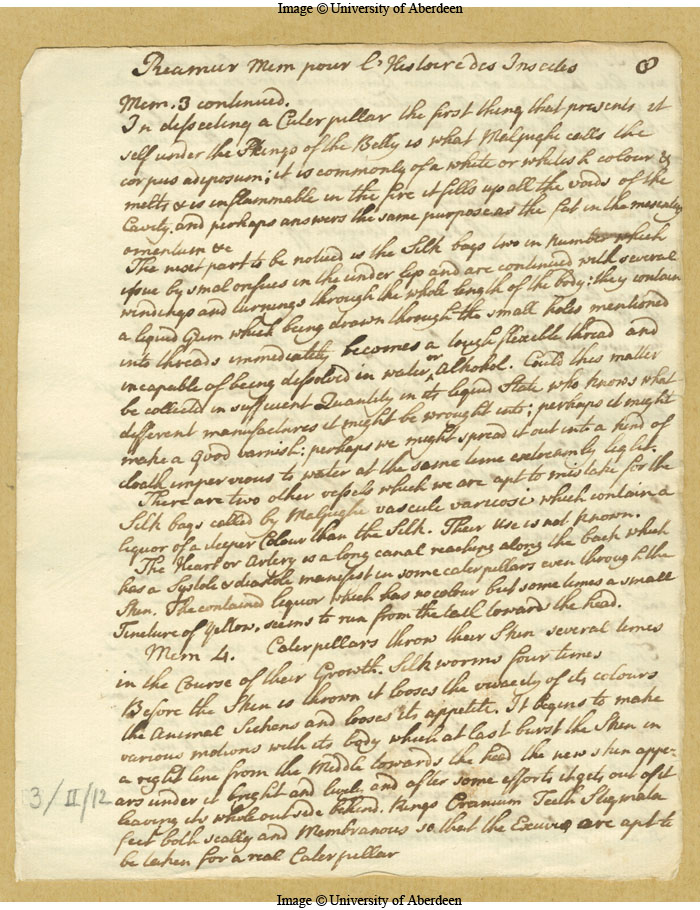 Image © University of Aberdeen
Reamur Mem pour L'Histoire des Insectes 8
Mem. 3 continued.
In dissecting a Caterpillar the first thing that presents it
self under the Rings of the Belly is what Malpighe calls the
corpus adiposum; it is commonly of a white or whitish colour &
melts & is inflammable in the fire it fills up all the voids of the
Cavity. and perhaps answers the same purpose as the fat in the mesentery
omentum &c
The next part to be noticed is the Silk bags two in number which
issue by smal orifices in the under lip and are continued with several
windings and turnings through the whole length of the body: they contain
a liquid Gum which being drawn through the small holes mentioned
into threads immediately becomes a tough flexible thread and
incapable of being dissolved in water or alkohol. Could this matter
be collected in sufficient Quantity in its liquid State who knows what
different manufactures it might be wrought into; perhaps it might
make a good varnish: perhaps we might spread it out into a kind of
cloath impervious to water at the same time extreamly light.
There are two other vessels which we are apt to mistake for the
Silk bags called by Malpighe vascule varicosi which contain a
liquor of a deeper Colour than the Silk. Their use is not known.
The Heart or Artery is a long canal reaching along the back which
has a Systole & diastole manifest in some caterpillars even through the
Skin. The contained liquor which has no colour but some times a small
Tincture of Yellow, seems to run from the tail toward the head.
Mem 4. Caterpillars throw their Skin several times
in the Course of their Growth. Silk worms four times
Before the Skin is thrown it looses the vivacity of its colours
the Animal Sickens and looses its appetite. It begins to make
various motions with its body which at last burst the Skin in
a right line from the Middle towards the head the new skin appe-
ars under it bright and lively and after some efforts it gets out of it
leaving its whole outside behind. Rings Cranium Teeth Stigmata
feet both scally and Membranous so that the Exuvia are apt to
be taken for a real Caterpillar
3/II/12
Image © University of Aberdeen